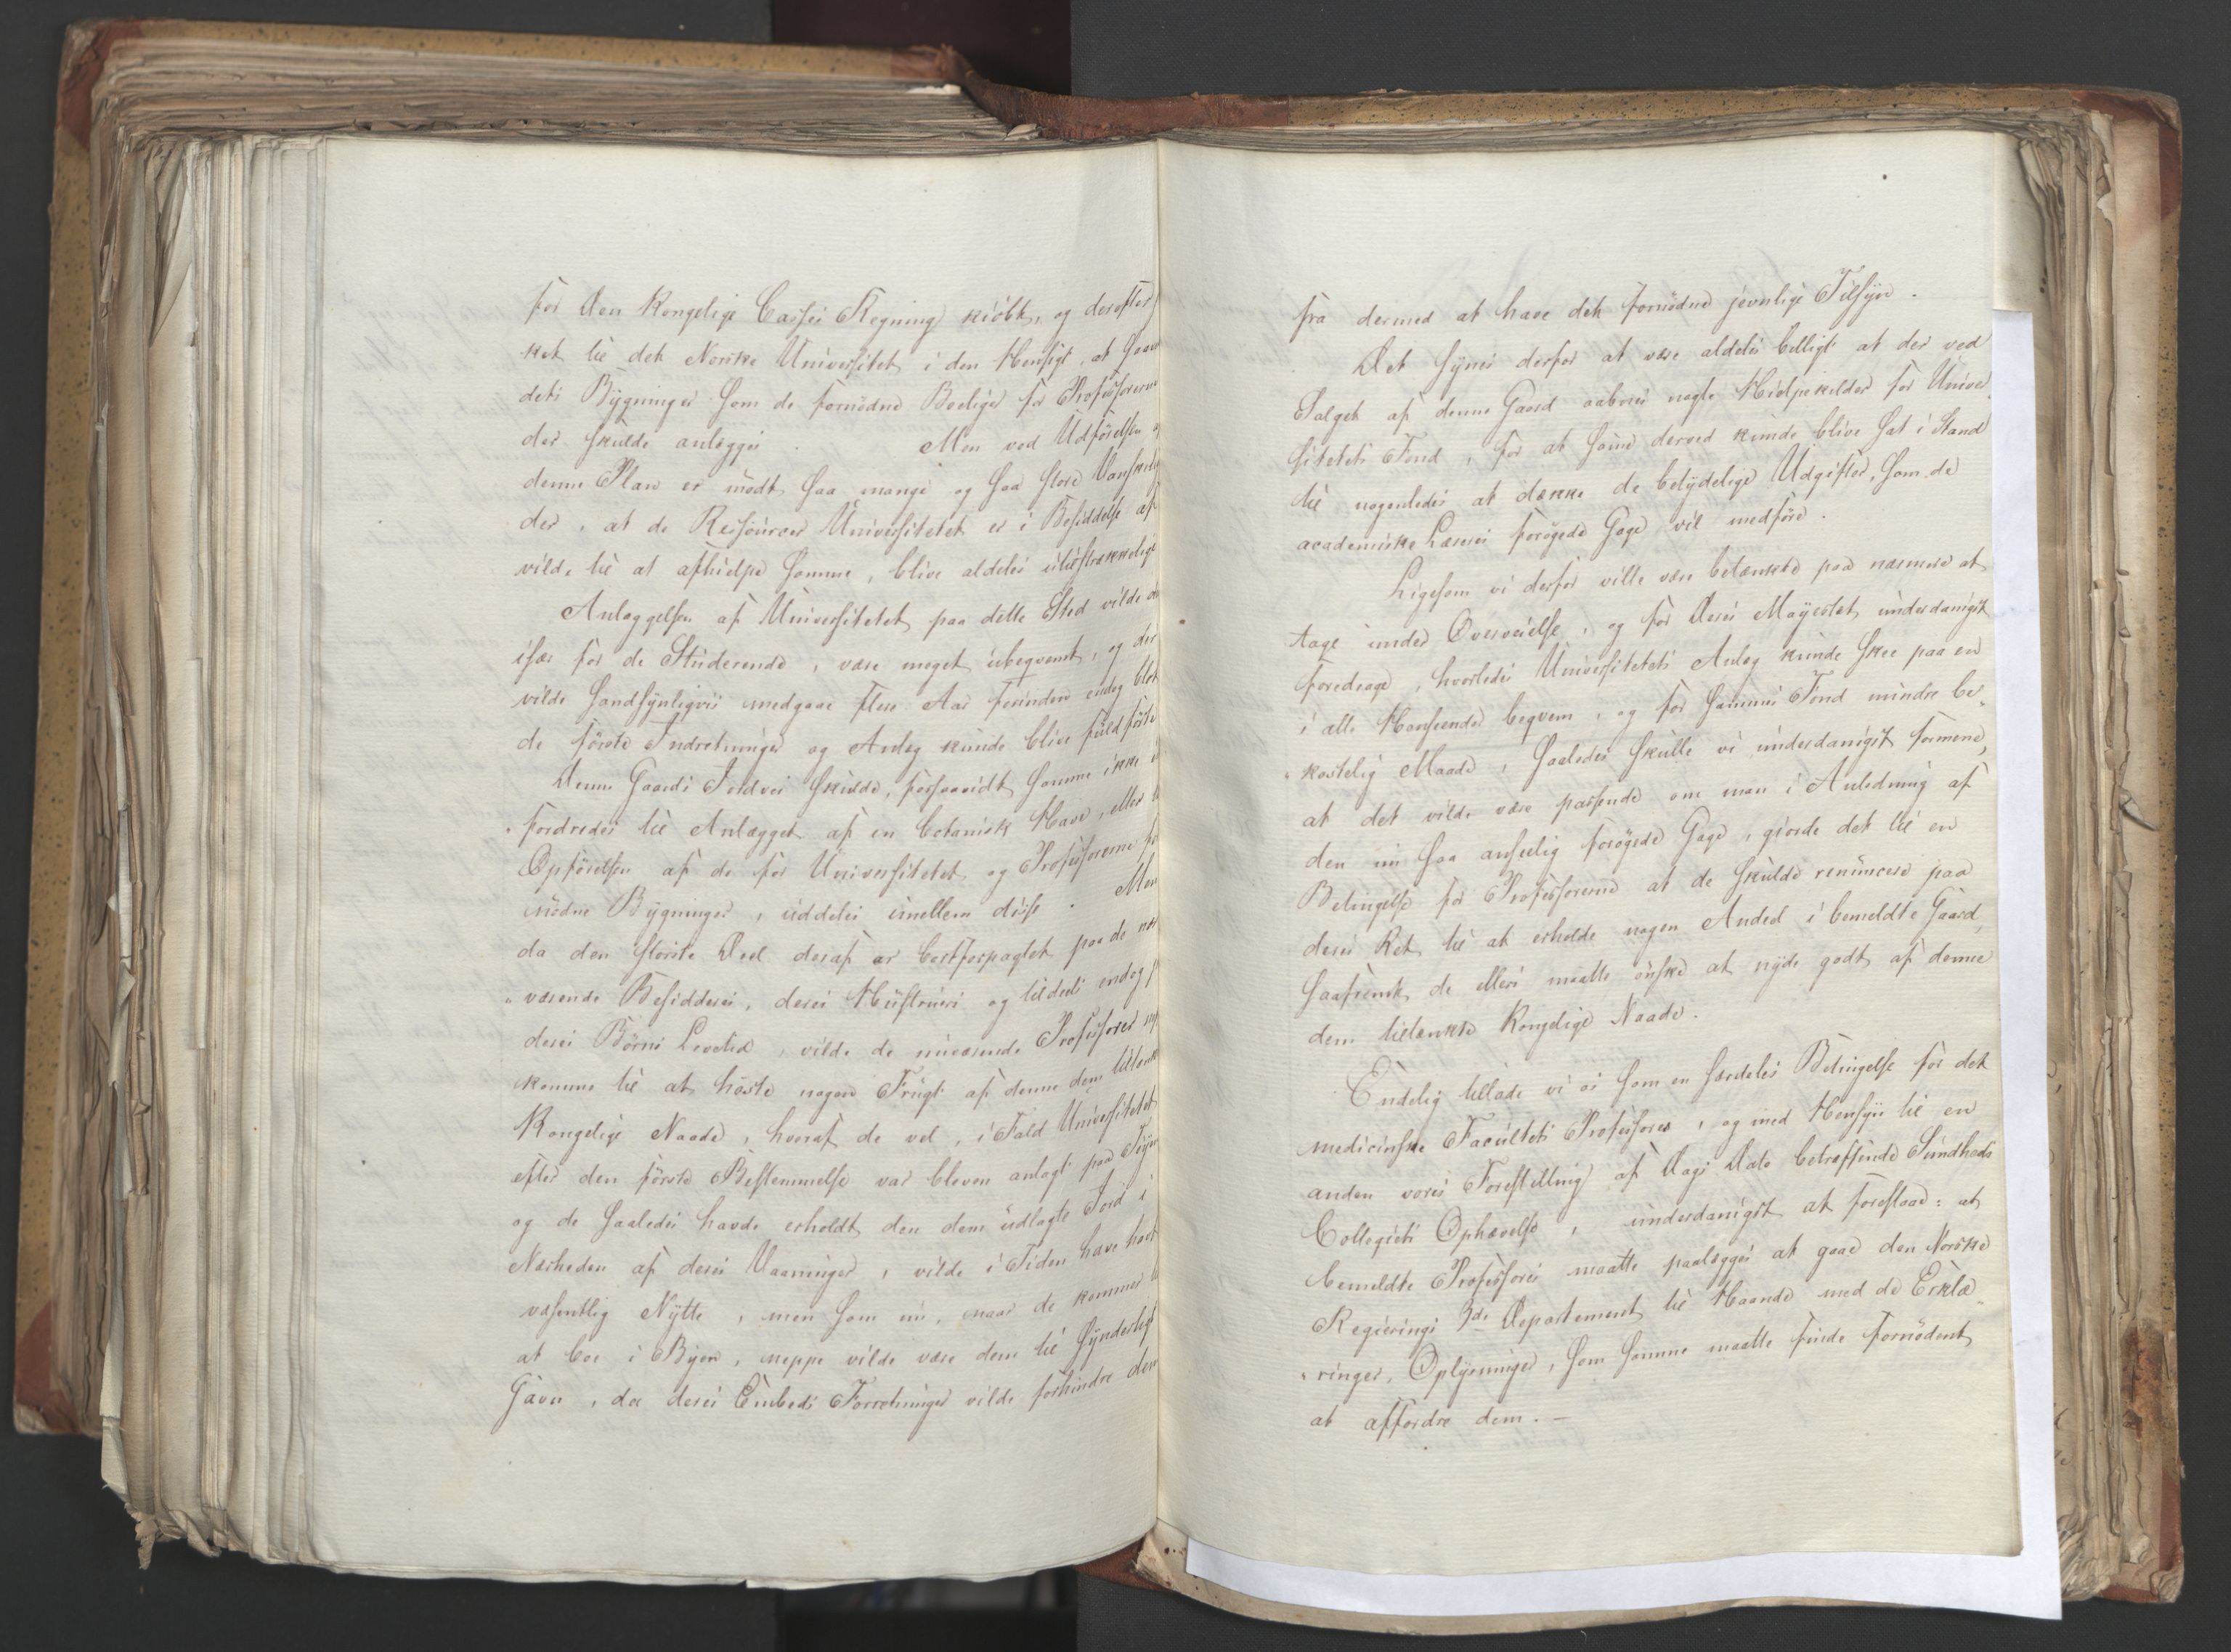 for den Kongelige Casses Regning kiöbt, og derefter
ket til det Norske Universitet i den Hensigt, at Gaar
dets Bygninger som de fornødne Boeliger for Professorerne
der skulde anlægges. Men ved Udførelsen
denne Plan er mødt saa mange og saa store Vanskelig
der, at de Ressourcer Universitetet er i Besiddelse af
vilde til at afhielpe samme, blive aldeles utilstrækkelige
Anlæggelsen af Universitetet paa dette Sted vilde
især for de Studerende, være meget ubeqvemt, og der
vilde sandsynligviis medgaae flere Aar forinden endog blot
de første Indretninger og Anlæg kunde blive fuldførte
Denne Gaards Jordvei skulde, forsaavidt samme ikke
fordredes til Anlægget af en botanisk Have, eller
Opførelsen af de for Universitetet og Professorerne for
nødne Bygninger, uddeles imellem disse. Men
da den største Deel deraf er bortforpagtet paa de nær
„værende Besidderes, deres Hustruers og tildeels endog
deres Børns Levetid, vilde de nuværende Professorer
komme til at høste nogen Frugt af denne dem tiltænkte
Kongelige Naade, hvoraf de vel, i Fald Universitetet
efter den første Bestemmelse var bleven anlagt paa Tøyen
og de saaledes havde erholdt den dem udlagte Jord i
Nærheden af deres Vaaninger, vilde i Tiden have havt
væsentlig Nytte, men som nu, naar de kommer
at boe i Byen, neppe vilde være dem til synderligt
Gavn, da deres Embeds Forretninger vilde forhindre dem
fra dermed at have det fornødne jevnlige Tilsyn.
Det synes derfor at være aldeles billigt at der ved
Salget af denne Gaard aabnes nogle Hielpekilder for Univer
sitetets Fond, for at samme derved kunde blive sat i Stand
til nogenledes at dække de betydelige Udgifter, som de
academiske Læreres forøgede Gage vil medføre.
Ligesom vi derfor ville være betænkte paa nærmere at
tage under Overveielse, og for Deres Majestæt underdanigst
foredrage, hvorledes Universitetets Anlæg kunde skee paa en
i alle Henseender beqvem, og for sammes Fond mindre be„
„kostelig Maade, saaledes skulle vi underdanigst formene,
at det vilde være passende om man i Anledning af
den nu saa anseelig forøgede Gage, giorde det til en
Betingelse for Professorerne at de skulde renuncere paa
deres Ret til at erholde nogen Andeel i bemeldte Gaard,
saafremt de ellers maatte ønske at nyde godt af denne
dem tiltænkte Kongelige Naade.
Endelig tillade vi os som en særdeles Betingelse for det
medicinske Facultets Professorer, og med Hensyn til en
anden vores Forestilling af Dags Dato betræffende Sundheds
Collegiets Ophævelse, underdanigst at foreslaae: at
bemeldte Professorer maatte paalægges at gaae den Norske
Regierings 3die Departement til Haande med de Erklæ„
„ringer, Oplysninger, som samme maatte finde fornødent
at affordre dem. —